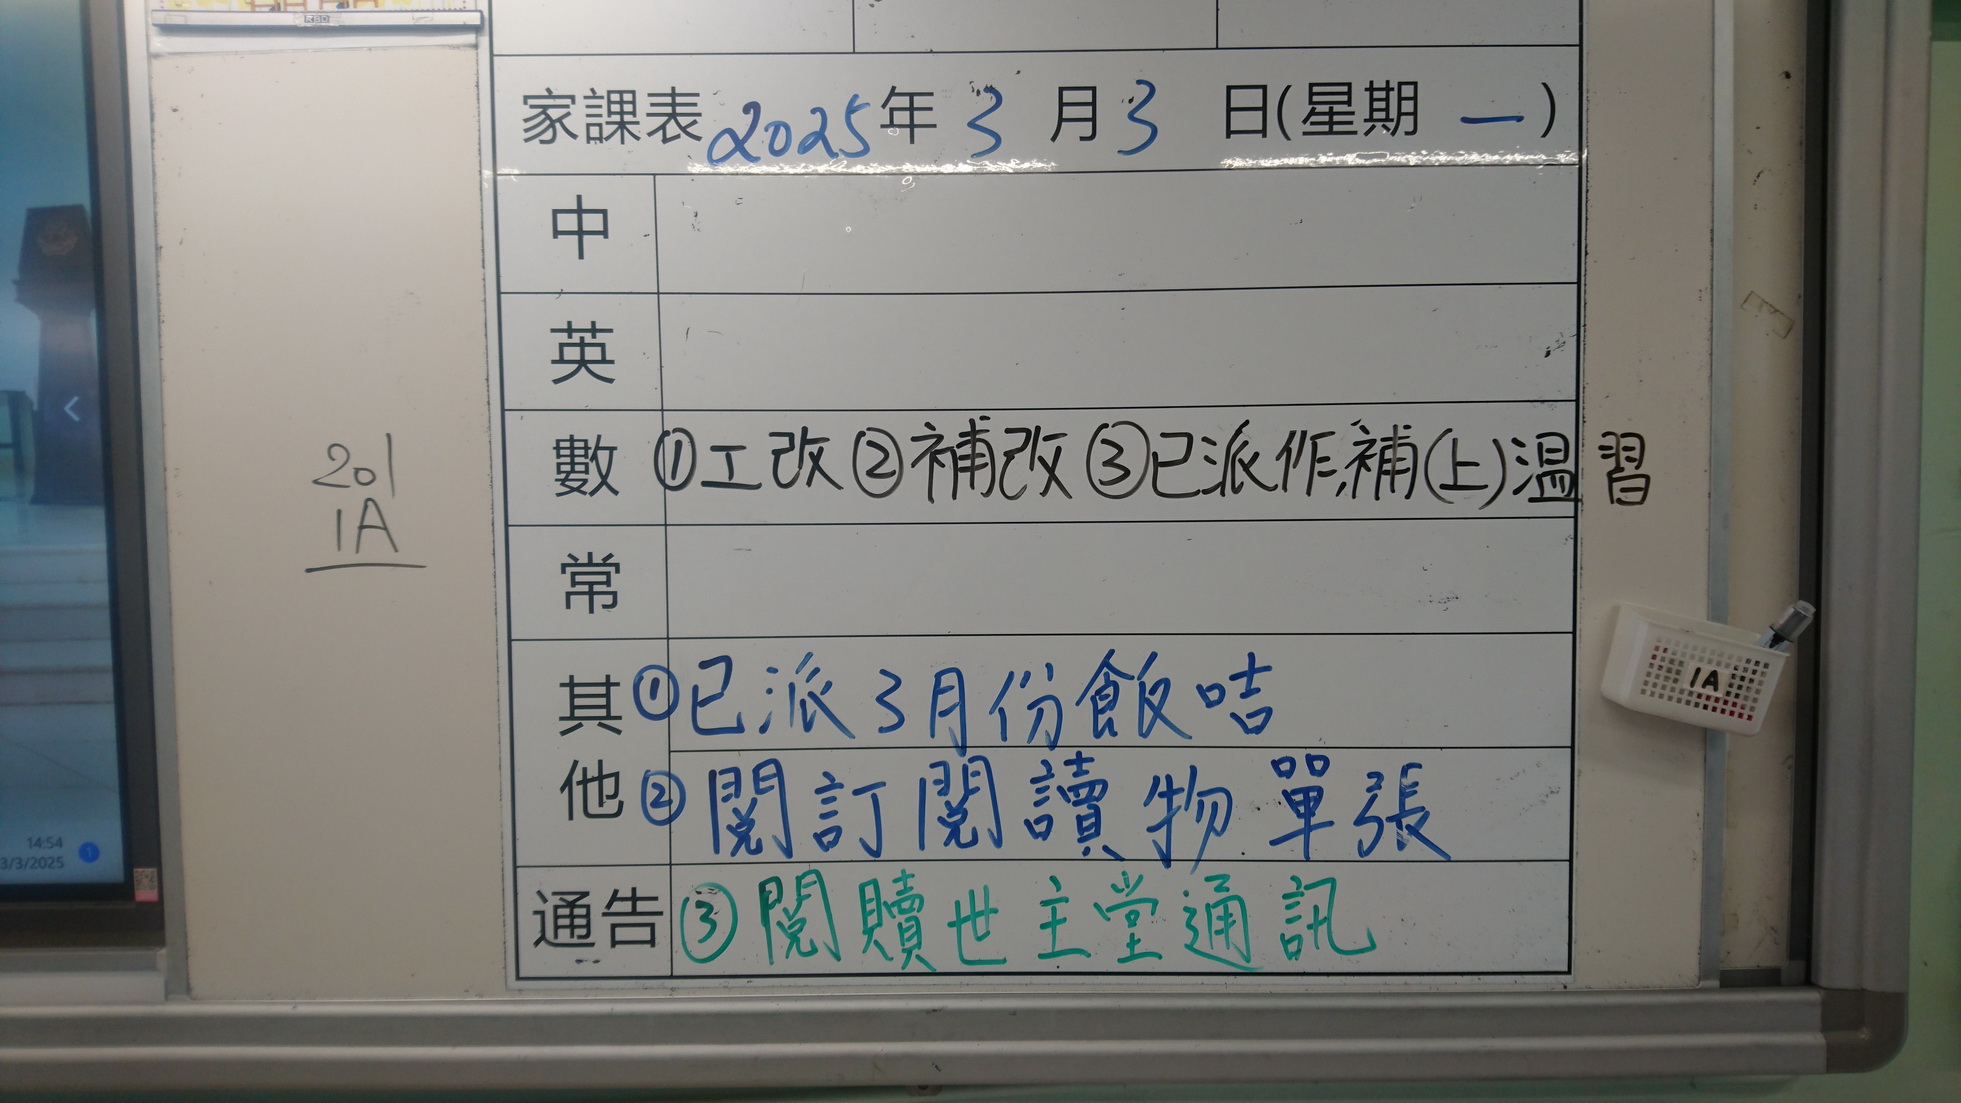 RBD
家課表2025年3月3日(星期一)
中
英
數 ①工改②補改③已派作,補(上)溫習
常
其他 ①已派3月份飯咭
②閱訂閱讀物單張
通告 ③閱贖世主堂通訊
201
1A
1A
14:54
3/3/2025
1